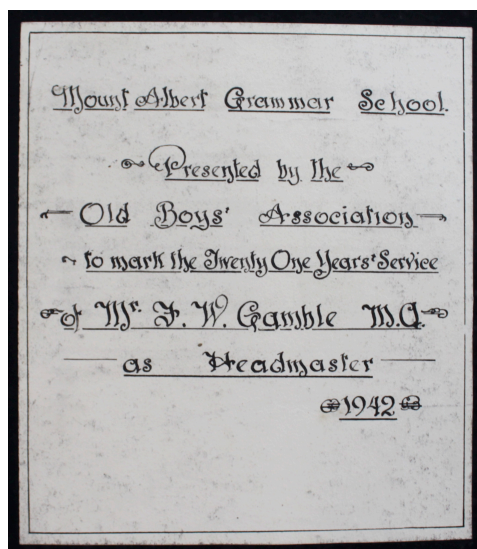 Mount Albert Grammar School.
Presented by the
Old Boys' Association
to mark the Twenty One Years' Service
of Mr. F. W. Gamble M.A.
as Headmaster
1942